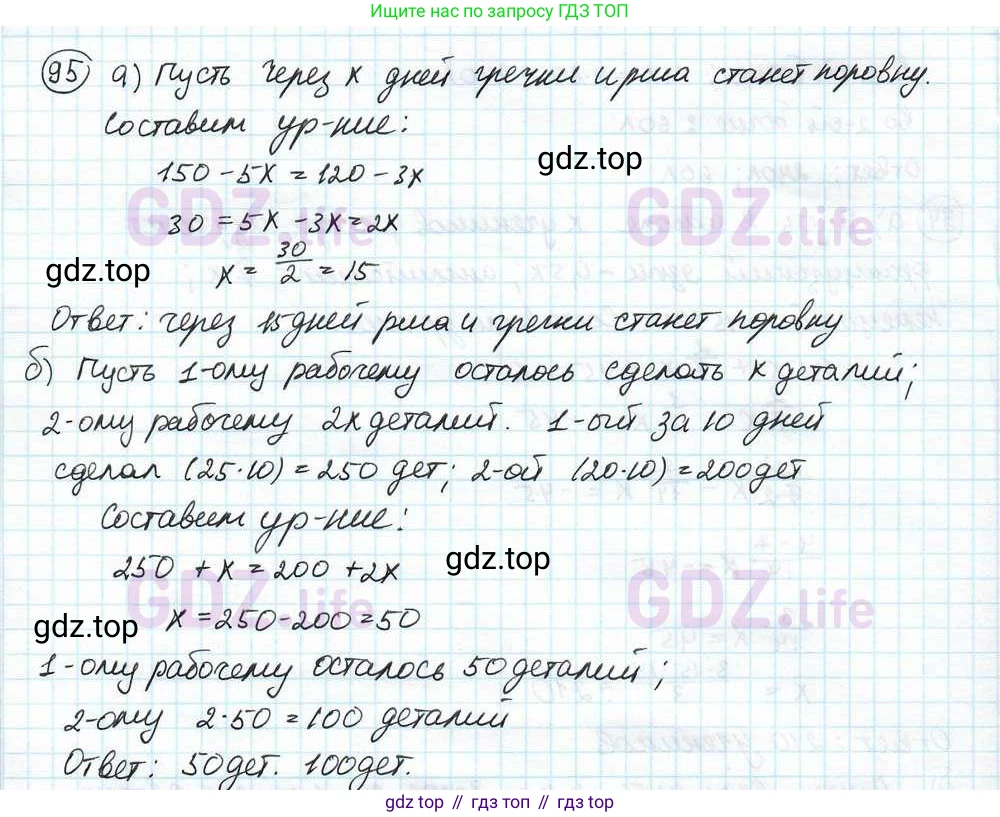 Ищите нас по запросу ГДЗ ТОП
95 а) Пусть через x дней гречки и риса станет поровну.
Составим ур-ние:
gdz.top
150 - 5x = 120 - 3x
GDZ.life GDZ.life
30 = 5x - 3x = 2x
gdz.top
x = 30/2 = 15
Ответ: через 15 дней риса и гречки станет поровну
б) Пусть 1-ому рабочему осталось сделать x деталий;
2-ому рабочему 2x деталий. 1-ый за 10 дней
сделал (25·10) = 250 дет; 2-ой (20·10) = 200 дет
Составим ур-ние:
gdz.top
250 + x = 200 + 2x
GDZ.life GDZ.life
gdz.top
x = 250 - 200 = 50
1-ому рабочему осталось 50 деталий;
2-ому 2·50 = 100 деталий
Ответ: 50 дет. 100 дет.
gdz.top // гдз топ // gdz.top